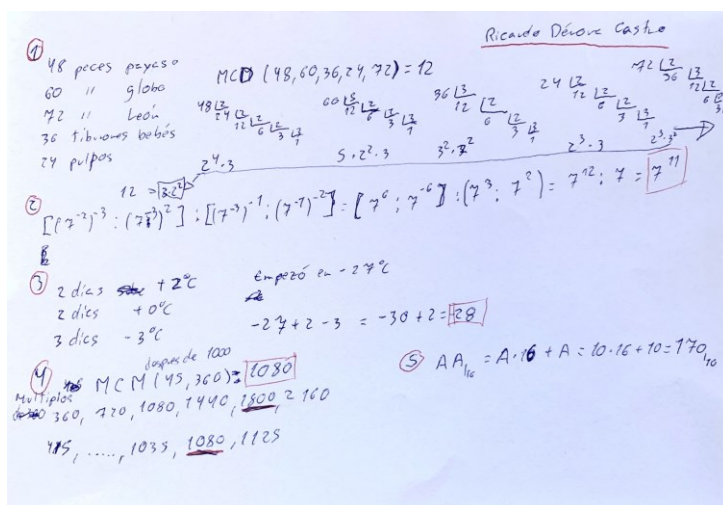 Ricardo Dérova Castro
① 48 peces payaso
60 " globo
72 " León
36 tiburones bebés
24 pulpos
MCD (48,60,36,24,72) = 12
48 |2 24 |2 12 |2 6 |2 3 |3 1
60 |5 12 |2 6 |2 3 |3 1
36 |3 12 |2 6 |2 3 |3 1
24 |2 12 |2 6 |2 3 |3 1
72 |2 36 |3 12 |2 6 |2 3
2⁴·3 5·2²·3 3²·2² 2³·3 2³·3²
12 = 3·2²
② [(7⁻²)⁻³ : (7⁻³)²] : [(7⁻³)⁻¹ : (7⁻¹)⁻²] = [7⁶ : 7⁻⁶] : (7³ : 7²) = 7¹² : 7 = 7¹¹
③ 2 días +2°C
2 días +0°C
3 días -3°C
Empezó en -27°C
-27+2-3 = -30+2 = -28
④ MCM (45,360) = 1080
despues de 1000
Multiplos
360, 720, 1080, 1440, 1800, 2160
45, ....., 1035, 1080, 1125
⑤ AA₁₆ = A·16 + A = 10·16 + 10 = 170₁₀